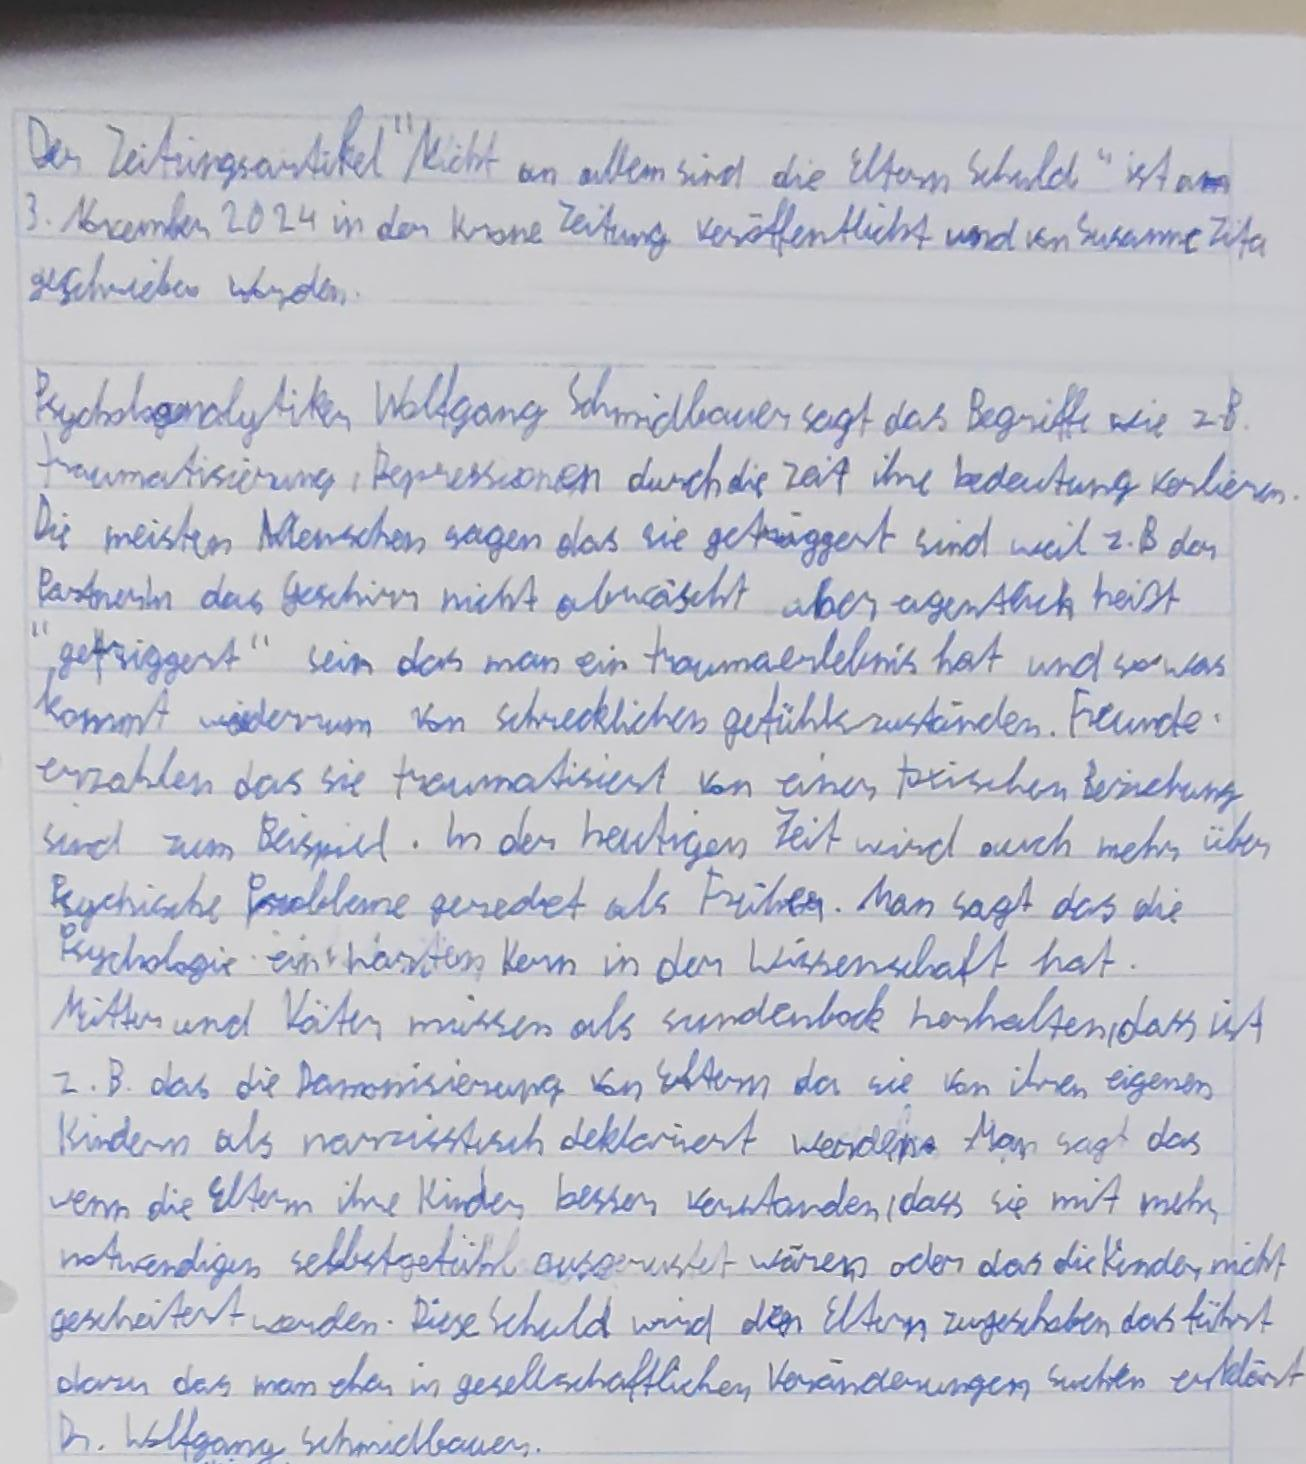 Der Zeitungsartikel "Nicht an allem sind die Eltern Schuld" ist am
3. November 2024 in der Krone Zeitung veröffentlicht und von Susanne Zita
geschrieben worden.
Psychologanalytiker Wolfgang Schmidbauer sagt das Begriffe wie z.B.
traumatisierung, Depressionen durch die Zeit ihre bedeutung verlieren.
Die meisten Menschen sagen das sie getriggert sind weil z.B der
PartnerIn das Geschirr nicht abwäscht aber eigentlich heißt
"getriggert" sein das man ein traumaerlebnis hat und sowas
kommt wiederrum von schrecklichen gefühlszuständen. Freunde
erzahlen das sie traumatisiert von einer toxischen Beziehung
sind zum Beispiel. In der heutigen Zeit wird auch mehr über
Psychische Probleme geredet als Früher. Man sagt das die
Psychologie ein harten Kern in der Wissenschaft hat.
Mütter und Väter müssen als sundenbock herhalten, dass ist
z.B. das die Damonisierung von Eltern da sie von ihren eigenen
Kindern als narzisstisch deklariert werden. Man sagt das
wenn die Eltern ihre Kinder besser verstanden, dass sie mit mehr
notwendigen selbstgefühl ausgerustet wären oder das die Kinder nicht
gescheitert werden. Diese Schuld wird den Eltern zugeschoben das führt
dazu das man eher in gesellschaftlichen Veränderungen suchen erklärt
Dr. Wolfgang Schmidbauer.